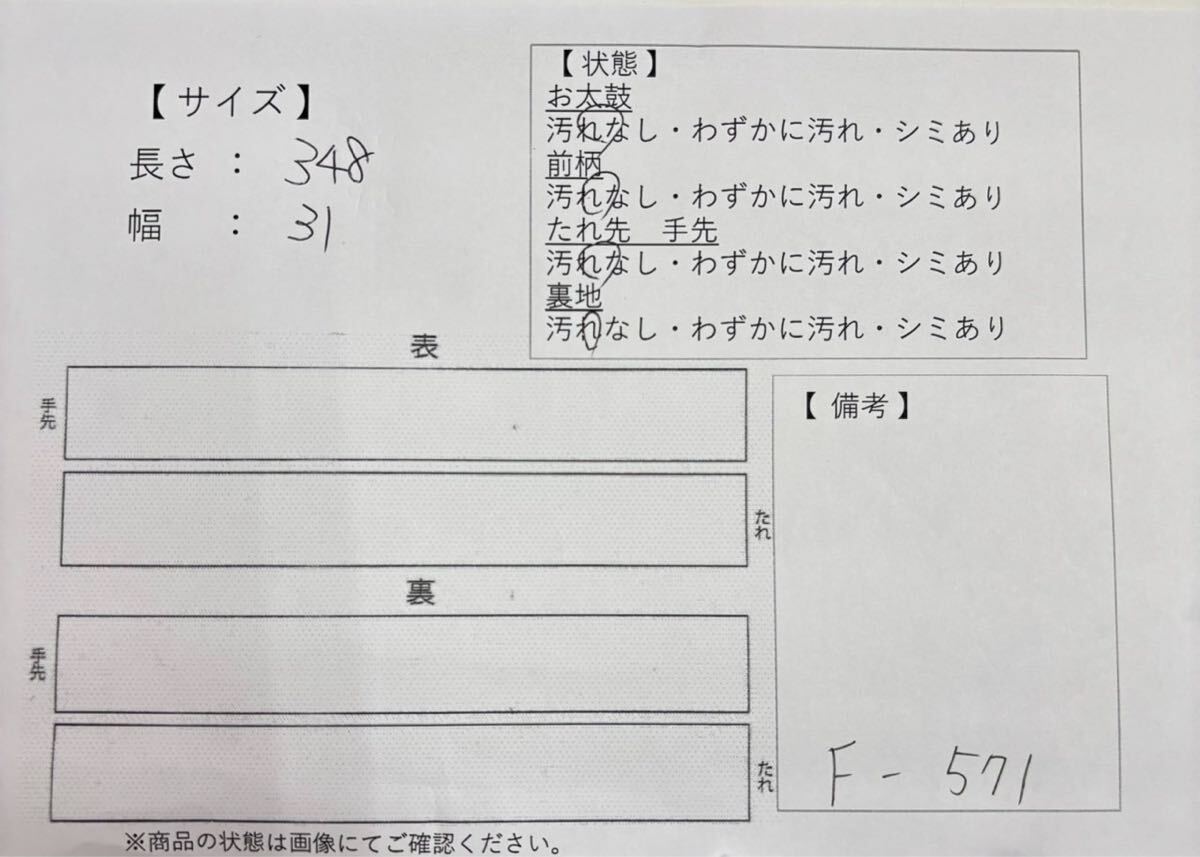 【 サイズ 】
長さ ： 348
幅 ： 31
【 状態 】
お太鼓
汚れなし・わずかに汚れ・シミあり
前柄
汚れなし・わずかに汚れ・シミあり
たれ先　手先
汚れなし・わずかに汚れ・シミあり
裏地
汚れなし・わずかに汚れ・シミあり
表
手先
たれ
裏
手先
たれ
【 備考 】
F - 571
※商品の状態は画像にてご確認ください。